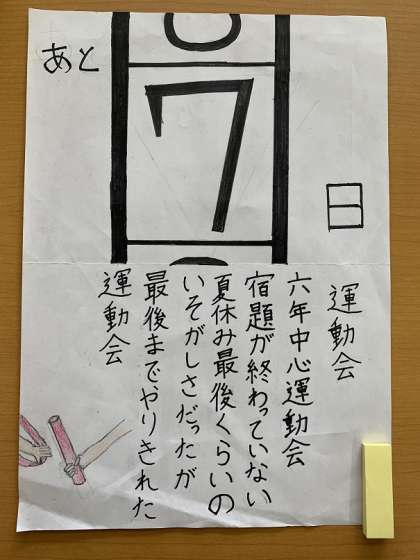 あと
7
日
運動会
六年中心運動会
宿題が終わっていない
夏休み最後くらいの
いそがしさだったが
最後までやりきれた
運動会